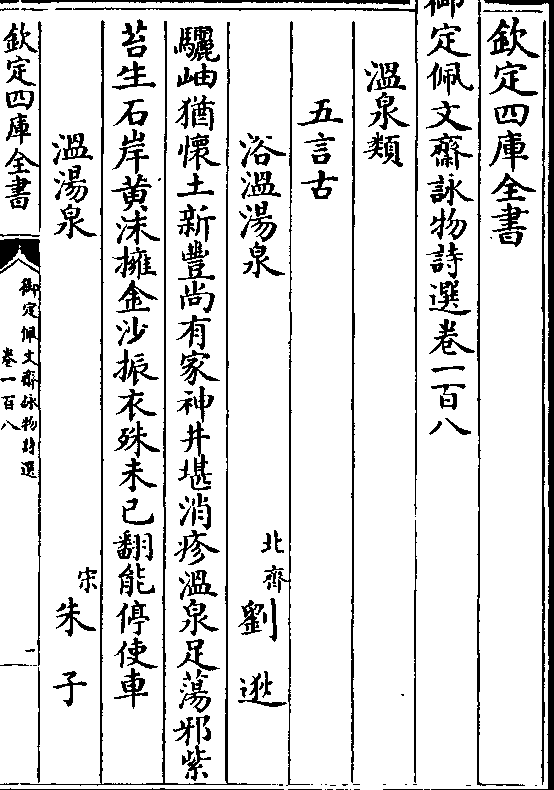 欽定四庫全書
御定佩文齋詠物詩選卷一百八
溫泉類
五言古
浴溫湯泉　北齊劉逖
驪岫猶懷土新豐尚有家神井堪消疹溫泉足蕩邪紫
苔生石岸黃沫擁金沙振衣殊未已翻能停使車
溫湯泉　宋朱子
欽定四庫全書
御定佩文齋詠物詩選
卷一百八
一